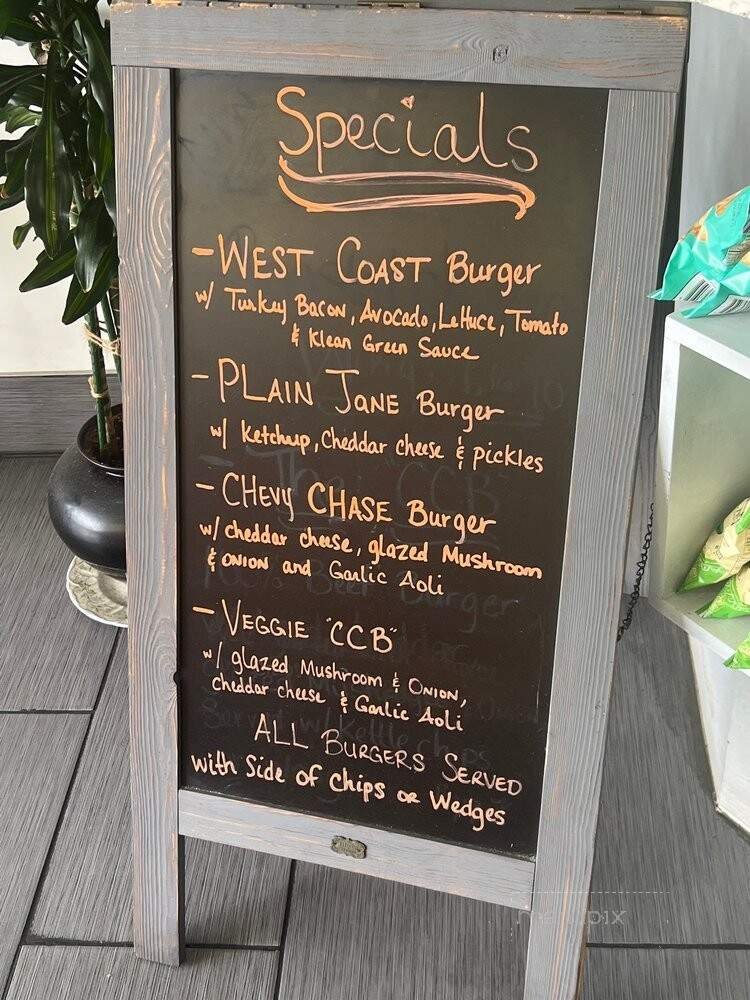 Specials
- WEST COAST Burger
w/ Turkey Bacon, Avocado, Lettuce, Tomato
& Klean Green Sauce
- PLAIN JANE Burger
w/ Ketchup, Cheddar cheese & pickles
- CHEVY CHASE Burger
w/ cheddar cheese, glazed Mushroom
& ONION and Garlic Aoli
- VEGGIE "CCB"
w/ glazed Mushroom & ONION,
cheddar cheese & Garlic Aoli
ALL BURGERS SERVED
with Side of Chips OR Wedges